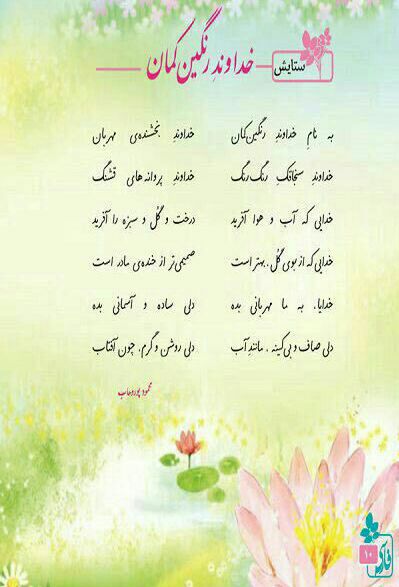 ستایش
خداوندِ رنگین‌کمان
به نامِ خداوندِ رنگین‌کمان خداوندِ بخشنده‌ی مهربان
خداوندِ سنجاقکِ رنگ رنگ خداوندِ پروانه‌های قشنگ
خدایی که آب و هوا آفرید درخت و گُل و سبزه را آفرید
خدایی که از بوی گُل، بهتر است صمیمی‌تر از خنده‌ی مادر است
خدایا، به ما مهربانی بده دلی ساده و آسمانی بده
دلی صاف و بی‌کینه، مانندِ آب دلی روشن و گرم، چون آفتاب
محمود پوروهاب
۱۰